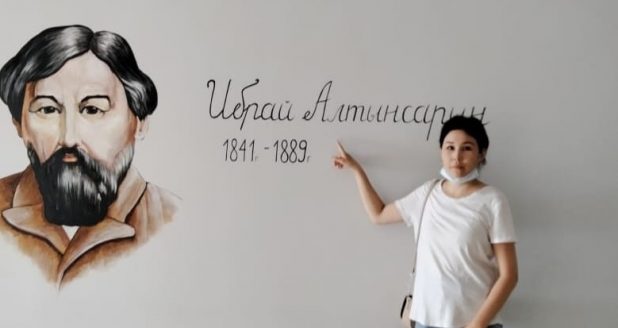 Ибрай Алтынсарин
1841г. - 1889г.